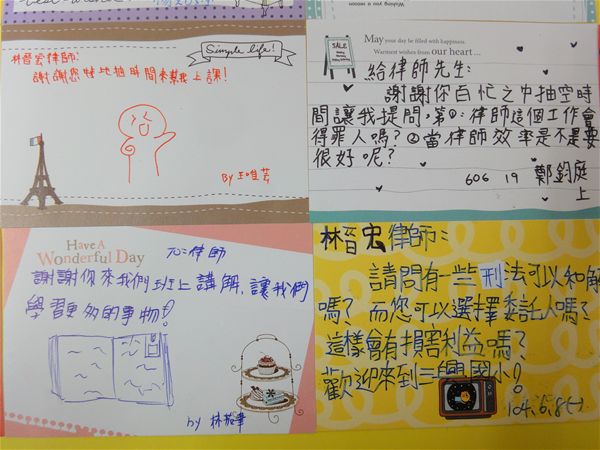 Simple life!
林晉宏律師:
謝謝您特地抽時間來幫我上課!
By 王唯芸
May your day be filled with happiness.
Warmest wishes from our heart...
SALE
給律師先生:
謝謝你百忙之中抽空時
間讓我提問,第①:律師這個工作會
得罪人嗎?②當律師效率是不是要
很好呢?
606 19 鄭鈞庭
上
HAVE A
WONDERFUL DAY
To:律師
謝謝你來我們班上講解,讓我們
學習更多的事物!
by 林
林晉宏律師:
請問有一些刑法可以和解
嗎?而您可以選擇委託人嗎?
這樣會有損害利益嗎?
歡迎來到三興國小!
104.6.8(一)